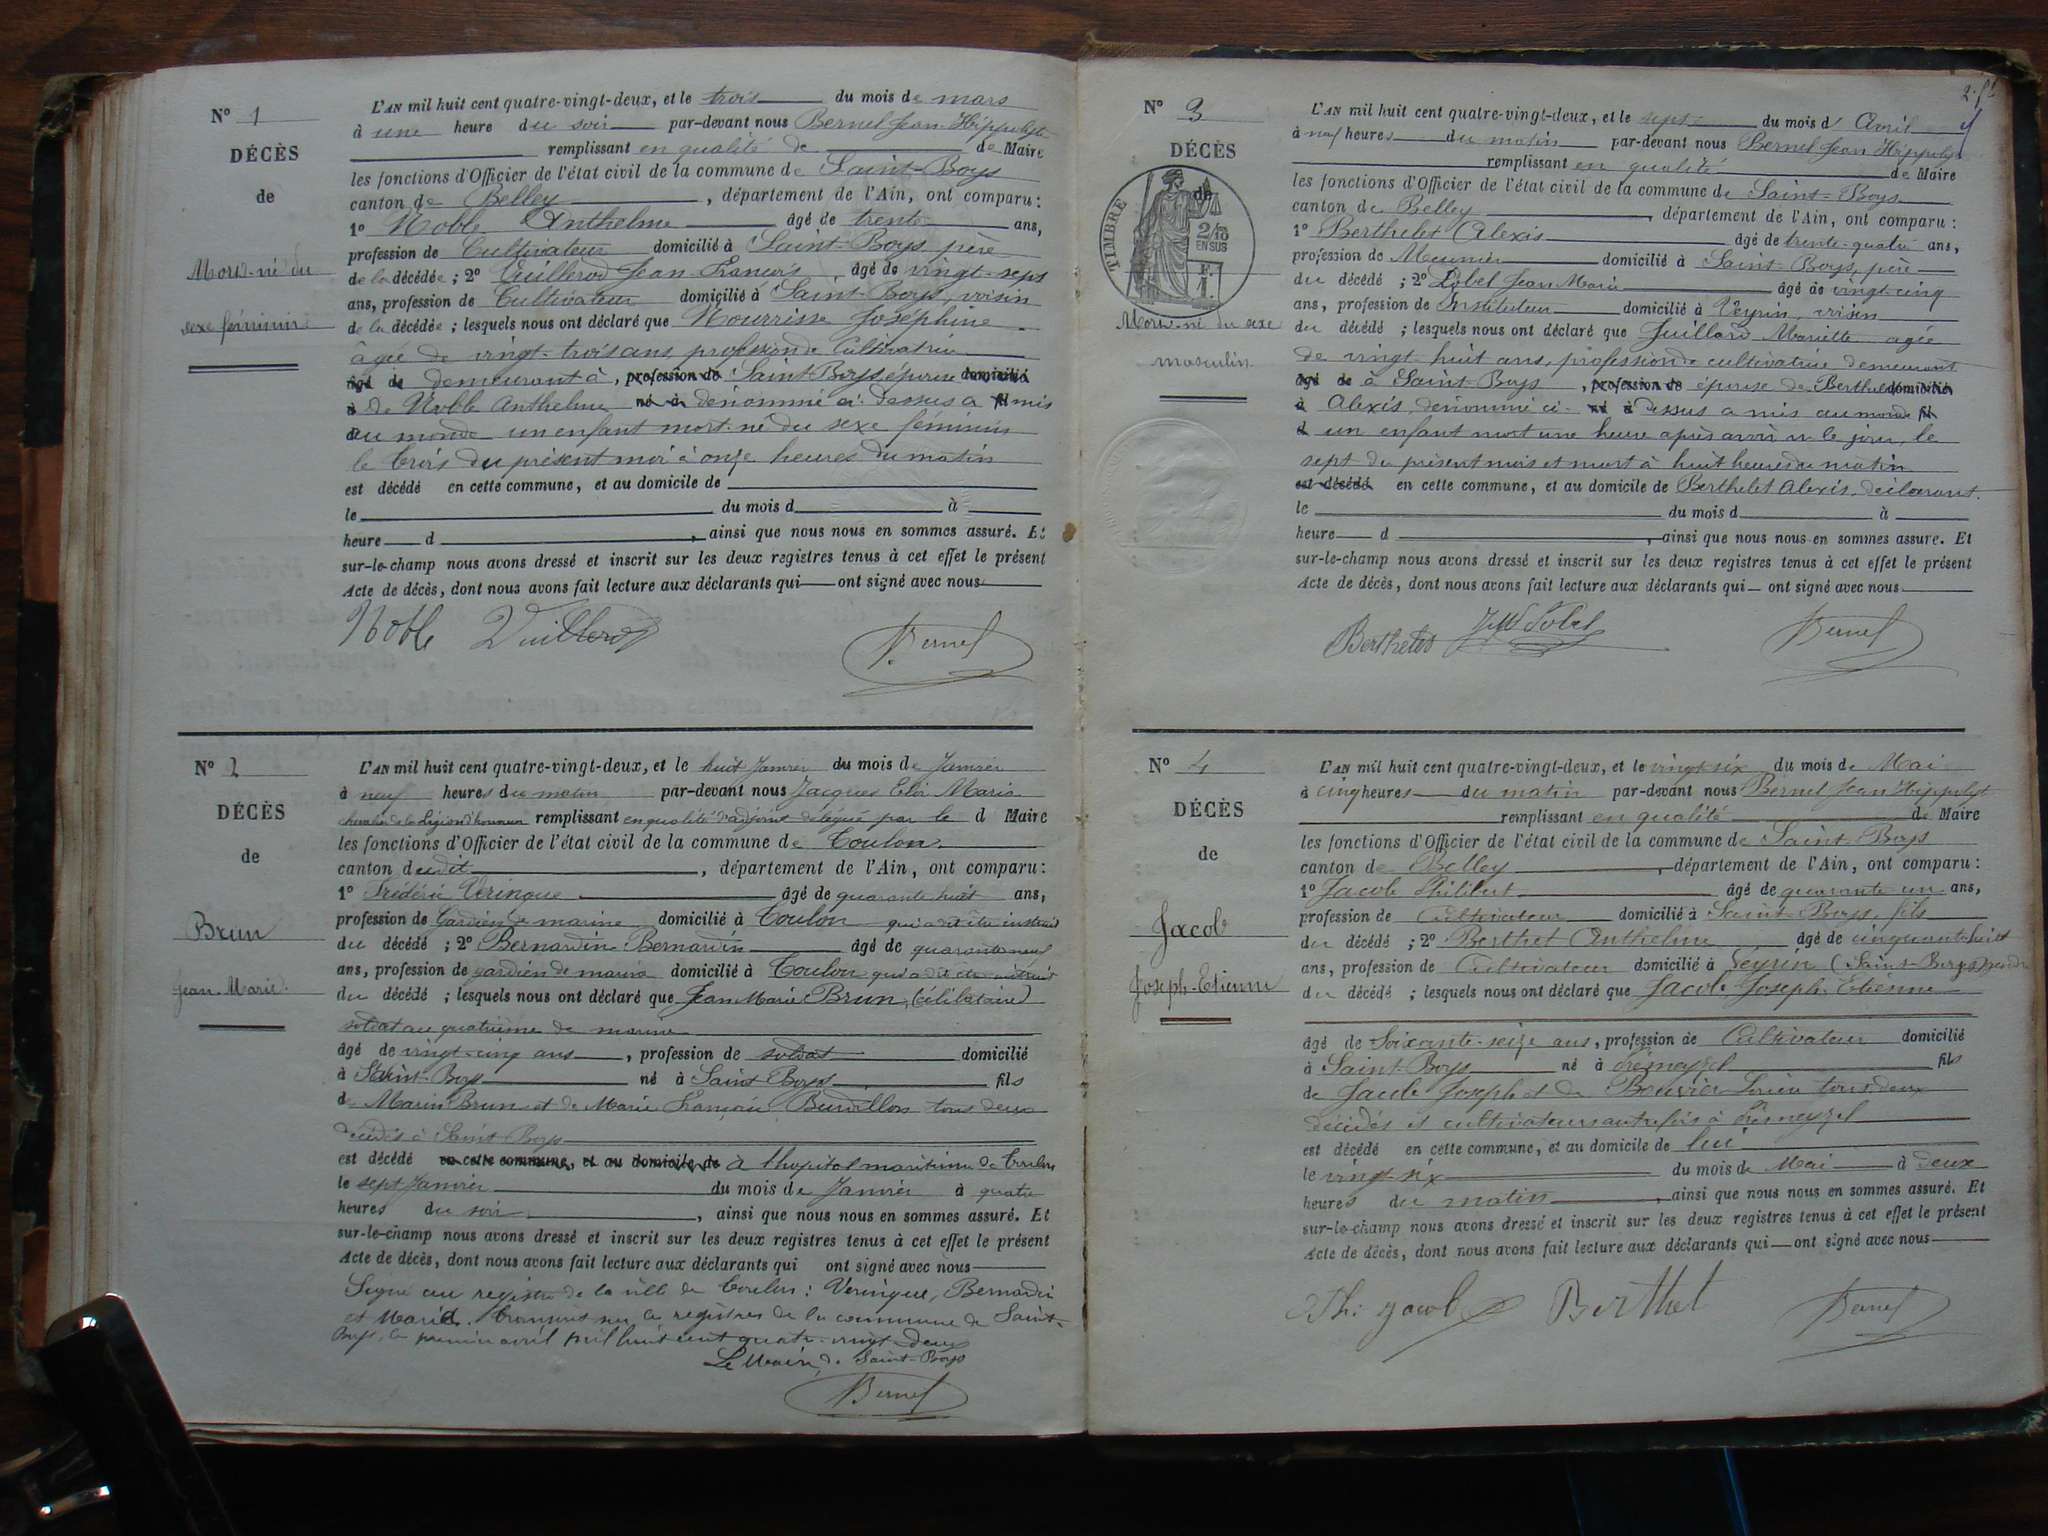 N° 1
DÉCÈS
de
Mort-né du
sexe féminin
L'AN mil huit cent quatre-vingt-deux, et le trois du mois de mars
à une heure du soir par-devant nous Bernel Jean-Hippolyte
remplissant en qualité de de Maire
les fonctions d'Officier de l'état civil de la commune de Saint-Boys
canton de Belley, département de l'Ain, ont comparu :
1° Noble Anthelme âgé de trente ans,
profession de Cultivateur domicilié à Saint-Boys, père
de la décédée ; 2° Vuillerod Jean-François, âgé de vingt-sept
ans, profession de Cultivateur domicilié à Saint-Boys, voisin
de la décédée ; lesquels nous ont déclaré que Nourrisse Joséphine
âgée de vingt-trois ans profession de Cultivatrice
âgé de demeurant à, profession de Saint-Boys épouse domicilié
à de Noble Anthelme né à dénommé ci-dessus a fil mis
au monde un enfant mort-né du sexe féminin
le trois du présent moi à onze heures du matin
est décédé en cette commune, et au domicile de
le du mois d à
heure d, ainsi que nous nous en sommes assuré. Et
sur-le-champ nous avons dressé et inscrit sur les deux registres tenus à cet effet le présent
Acte de décès, dont nous avons fait lecture aux déclarants qui ont signé avec nous
Noble Vuillerod Bernel
N° 2
DÉCÈS
de
Brun
Jean-Marie
L'AN mil huit cent quatre-vingt-deux, et le huit Janvier du mois de Janvier
à neuf heures du matin par-devant nous Jacques Eloi Mario
chevalier de la Légion d'honneur remplissant en qualité d'adjoint délégué par le d Maire
les fonctions d'Officier de l'état civil de la commune de Toulon
canton dudit, département de l'Ain, ont comparu :
1° Frédéric Veringue âgé de quarante huit ans,
profession de Gardien de marine domicilié à Toulon qui a dit être
du décédé ; 2° Bernardin Bernardin âgé de quarante neuf
ans, profession de gardien de marine domicilié à Toulon qui a dit être
du décédé ; lesquels nous ont déclaré que Jean Marie Brun, (célibataire)
soldat au quatrième de marine
âgé de vingt-cinq ans, profession de soldat domicilié
à Saint-Boys né à Saint Boys fils
de Marin Brun et de Marie Françoise tous deux
décédés à Saint-Boys
est décédé en cette commune, et au domicile de à l'hopital maritime de Toulon
le sept Janvier du mois de Janvier à quatre
heures du soir, ainsi que nous nous en sommes assuré. Et
sur-le-champ nous avons dressé et inscrit sur les deux registres tenus à cet effet le présent
Acte de décès, dont nous avons fait lecture aux déclarants qui ont signé avec nous
Signé au registre de la ville de Toulon : Veringue, Bernardin
et Mario. Transcrit sur les registres de la commune de Saint-
Boys, le premier avril mil huit cent quatre-vingt-deux
Le Maire de Saint-Boys
Bernel
N° 3
DÉCÈS
de
TIMBRE
2/10
EN SUS
Mort-né du sexe
masculin
L'AN mil huit cent quatre-vingt-deux, et le sept du mois d'Avril
à neuf heures du matin par-devant nous Bernel Jean Hippolyte
remplissant en qualité de Maire
les fonctions d'Officier de l'état civil de la commune de Saint-Boys
canton de Belley, département de l'Ain, ont comparu :
1° Berthelet Alexis âgé de trente-quatre ans,
profession de Meunier domicilié à Saint-Boys, père
du décédé ; 2° Jean Marie âgé de vingt-cinq
ans, profession de Instituteur domicilié à Veyrin, voisin
du décédé ; lesquels nous ont déclaré que Juillard Mariette âgée
de vingt-huit ans, profession de cultivatrice demeurant
âgé de à Saint-Boys, profession de épouse de Berthelet domicilié
à Alexis, dénommé ci- né à dessus a mis au monde fil
d un enfant mort une heure après avoir vu le jour, le
sept du présent mois et mort à huit heures du matin
est décédé en cette commune, et au domicile de Berthelet Alexis, déclarant.
le du mois d à
heure d, ainsi que nous nous en sommes assuré. Et
sur-le-champ nous avons dressé et inscrit sur les deux registres tenus à cet effet le présent
Acte de décès, dont nous avons fait lecture aux déclarants qui ont signé avec nous
Berthelet Bernel
N° 4
DÉCÈS
de
Jacob
Joseph-Etienne
L'AN mil huit cent quatre-vingt-deux, et le vingt-six du mois de Mai
à cinq heures du matin par-devant nous Bernel Jean Hippolyte
remplissant en qualité de Maire
les fonctions d'Officier de l'état civil de la commune de Saint-Boys
canton de Belley, département de l'Ain, ont comparu :
1° Jacob Philibert âgé de quarante un ans,
profession de Cultivateur domicilié à Saint-Boys, fils
du décédé ; 2° Berthet Anthelme âgé de cinquante huit
ans, profession de Cultivateur domicilié à Veyrin (Saint-Boys) gendre
du décédé ; lesquels nous ont déclaré que Jacob Joseph-Etienne
âgé de Soixante-seize ans, profession de Cultivateur domicilié
à Saint-Boys né à Trémeyzel fils
de Jacob Joseph et de Bouvier tous deux
décédés et cultivateurs autrefois à Trémeyzel
est décédé en cette commune, et au domicile de lui
le vingt-six du mois de Mai à deux
heures du matin, ainsi que nous nous en sommes assuré. Et
sur-le-champ nous avons dressé et inscrit sur les deux registres tenus à cet effet le présent
Acte de décès, dont nous avons fait lecture aux déclarants qui ont signé avec nous
Ph: Jacob Berthet Bernel